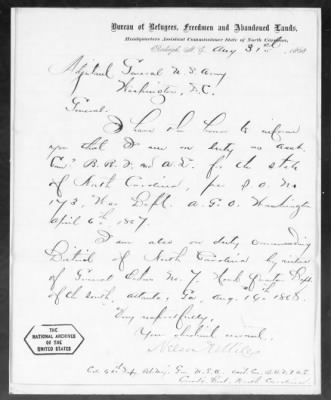 Bureau of Refugees, Freedmen and Abandoned Lands,
Headquarters Assistant Commissioner State of North Carolina,
Raleigh, N. C., Aug 31st, 1868
Adjutant General U.S. Army
Washington, D.C.
General:
I have the honor to inform
you that I am on duty as Asst.
Com'r B.R.F. and A.L. for the state
of North Carolina, per S.O. No
173, War Dept. A.G.O. Washington
April 6th 1867.
I am also on duty commanding
District of North Carolina by virtue
of General Order No. 7, Head Quarters Dept.
of the South, Atlanta, Ga, Aug. 1868.
Very respectfully,
Your obedient servant,
Nelson A. Miles
Col. 40th Infy
North Carolina
THE
NATIONAL ARCHIVES
OF THE
UNITED STATES